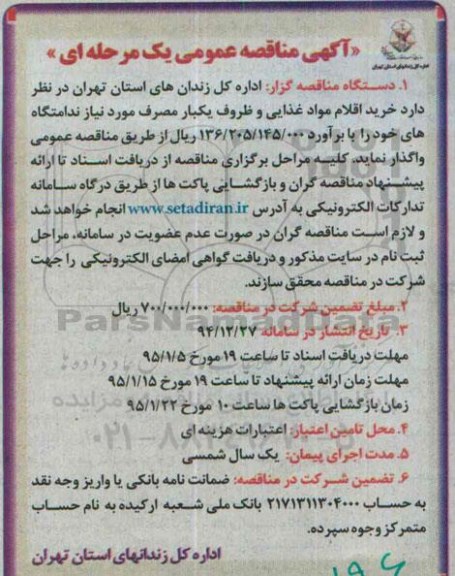 «آگهی مناقصه عمومی یک مرحله ای»
اداره کل زندانهای استان تهران
۱. دستگاه مناقصه گزار: اداره کل زندان های استان تهران در نظر
دارد خرید اقلام مواد غذایی و ظروف یکبار مصرف مورد نیاز ندامتگاه
های خود را با برآورد ۱۳۶/۲۰۵/۱۴۵/۰۰۰ ریال از طریق مناقصه عمومی
واگذار نماید. کلیه مراحل برگزاری مناقصه از دریافت اسناد تا ارائه
پیشنهاد مناقصه گران و بازگشایی پاکت ها از طریق درگاه سامانه
تدارکات الکترونیکی به آدرس www.setadiran.ir انجام خواهد شد
و لازم است مناقصه گران در صورت عدم عضویت در سامانه، مراحل
ثبت نام در سایت مذکور و دریافت گواهی امضای الکترونیکی را جهت
شرکت در مناقصه محقق سازند.
۲. مبلغ تضمین شرکت در مناقصه: ۷۰۰/۰۰۰/۰۰۰ ریال
ParsNamadData
۳. تاریخ انتشار در سامانه ۹۴/۱۲/۲۷
مهلت دریافت اسناد تا ساعت ۱۹ مورخ ۹۵/۱/۵
مهلت زمان ارائه پیشنهاد تا ساعت ۱۹ مورخ ۹۵/۱/۱۵
زمان بازگشایی پاکت ها ساعت ۱۰ مورخ ۹۵/۱/۲۲
۴. محل تامین اعتبار: اعتبارات هزینه ای
۵. مدت اجرای پیمان: یک سال شمسی
۶. تضمین شرکت در مناقصه: ضمانت نامه بانکی یا واریز وجه نقد
به حساب ۲۱۷۱۳۱۱۳۰۴۰۰۰ بانک ملی شعبه ارکیده به نام حساب
متمرکز وجوه سپرده.
اداره کل زندانهای استان تهران